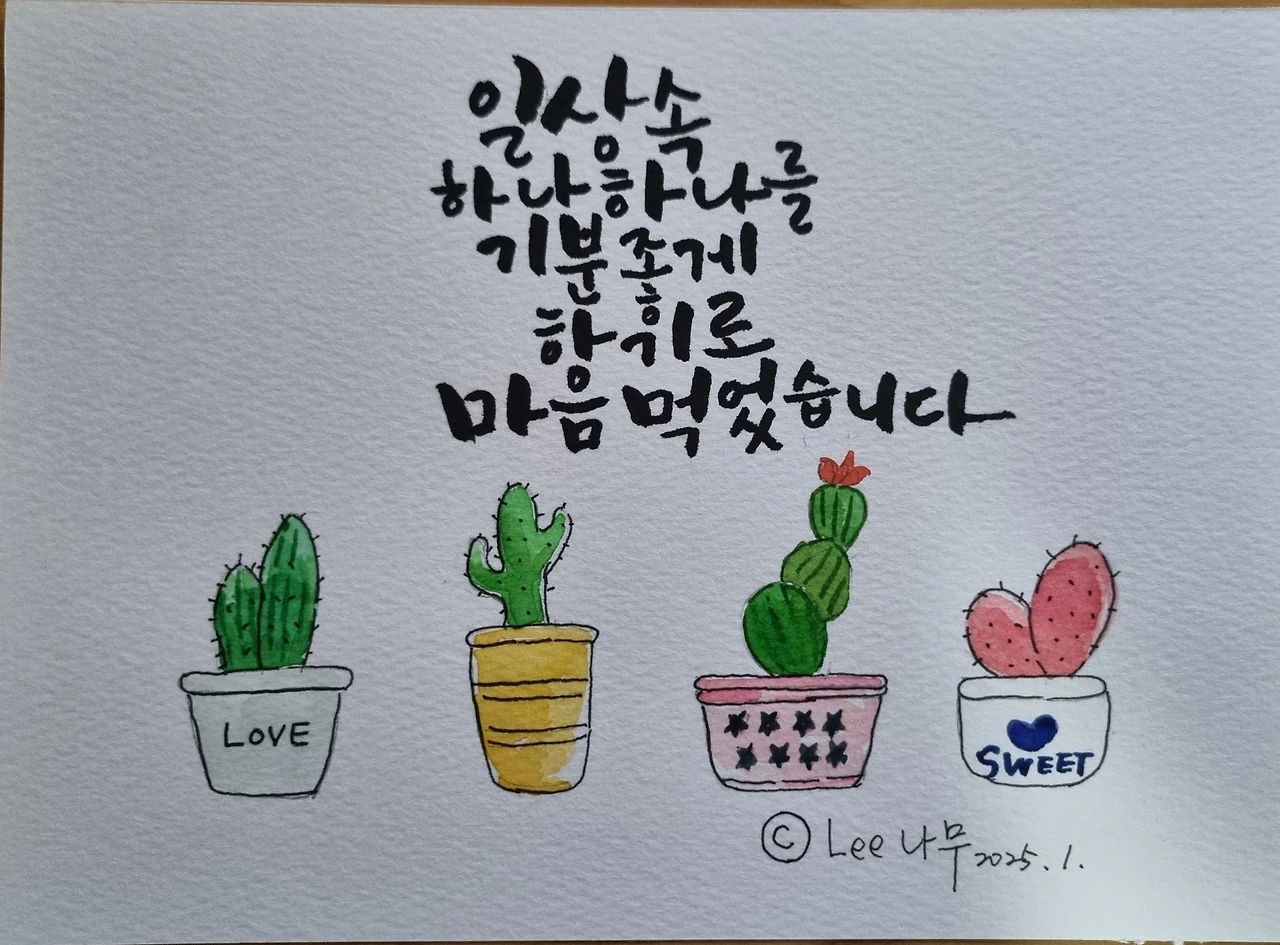 일상속
하나하나를
기분좋게
하기로
마음먹었습니다
LOVE
SWEET
© Lee 나무 2025.1.